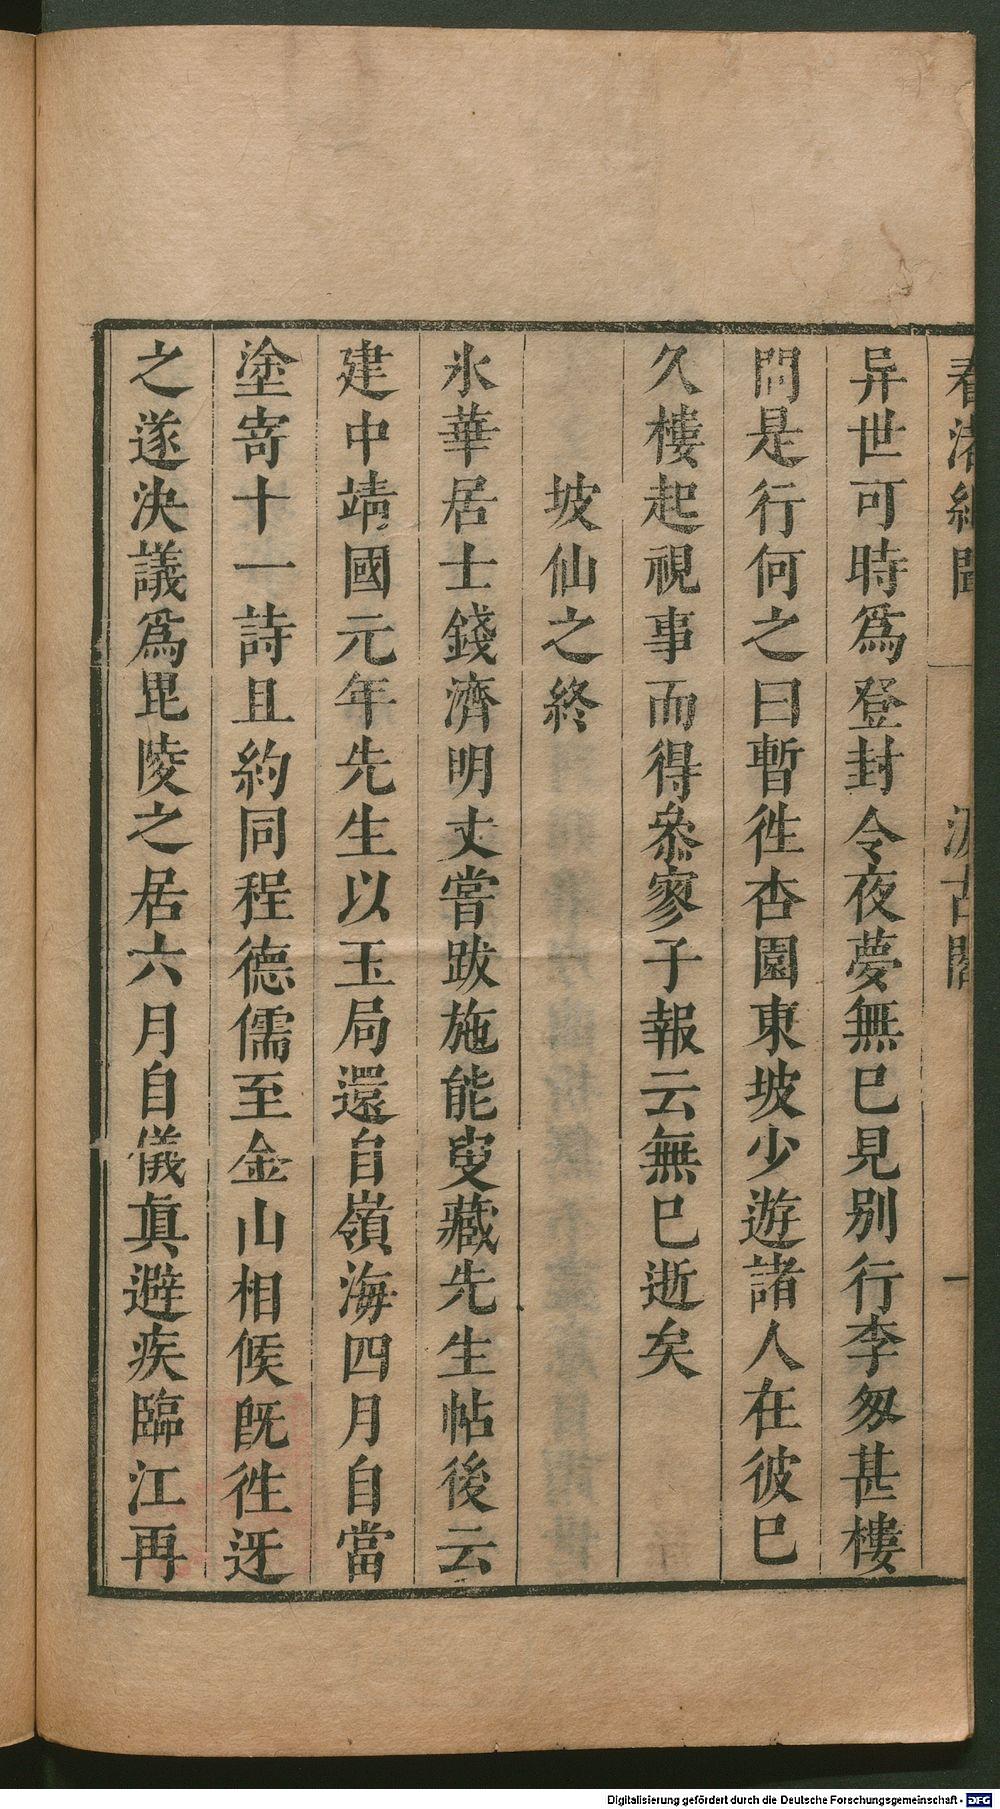 春渚紀聞 一 汲古閣 一
异世可時爲登封令夜夢無巳見别行李匆甚樓
問是行何之曰暫徃杏園東坡少遊諸人在彼巳
久樓起視事而得叅寥子報云無巳逝矣
坡仙之終
氷華居士錢濟明丈嘗跋施能叟藏先生帖後云
建中靖國元年先生以玉局還自嶺海四月自當
塗寄十一詩且約同程德儒至金山相候旣徃迓
之遂決議爲毘陵之居六月自儀眞避疾臨江再
Digitalisierung gefördert durch die Deutsche Forschungsgemeinschaft - DFG